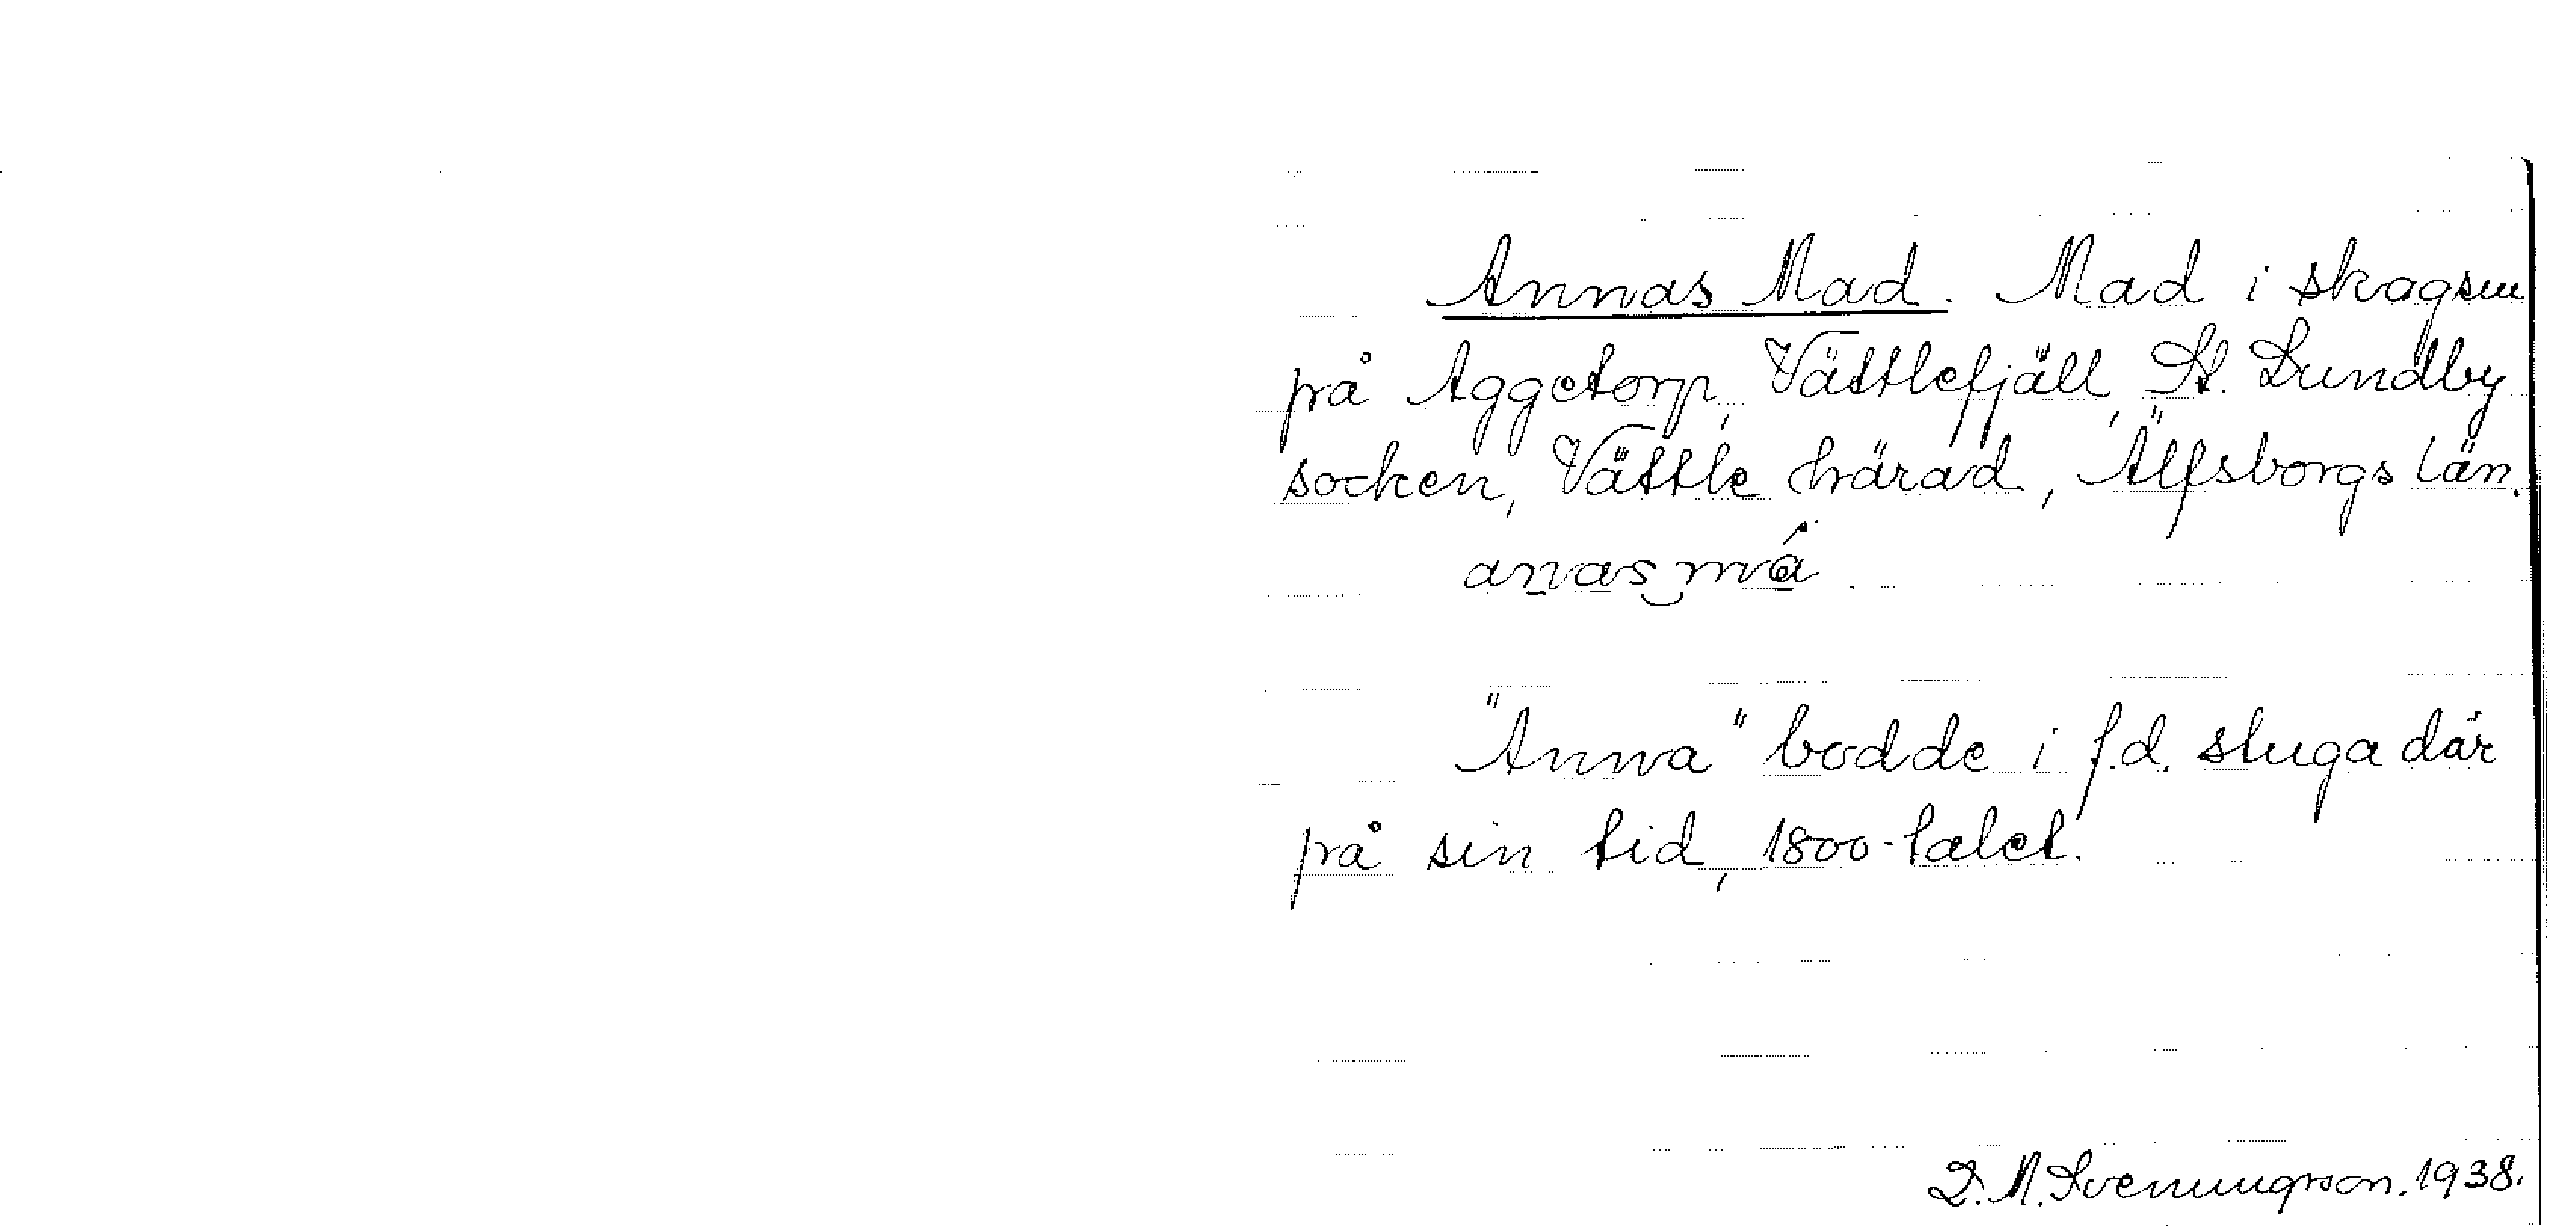 Annas Mad. Mad i skogsm
på Aggetorp, Vättlefjäll, St. Lundby
socken, Vättle härad, Älfsborgs län.
anas má
"Anna" bodde i f.d. stuga där
på sin tid, 1800-talet.
D. A. Svenungson. 1938.